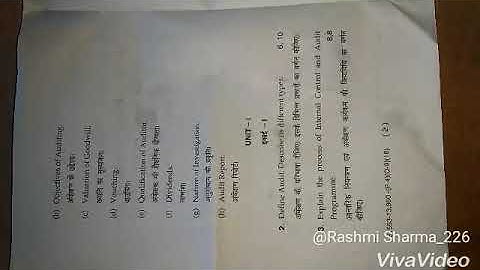 (b) Objectives of Auditing.
अंकेक्षण के उद्देश्य।
(c) Valuation of Goodwill.
ख्याति का मूल्यांकन।
(d) Vouching.
(e) Qualification of Auditor.
अंकेक्षक की
(f) Dividends.
लाभांश।
(g) Nature of Investigation.
अनुसंधान की प्रकृति।
(h) Audit Report.
अंकेक्षण रिपोर्ट।
UNIT – I
इकाई – I
2. Define Audit. Describe its different types. 6, 10
अंकेक्षण की परिभाषा दीजिए। इसके विभिन्न प्रकारों का वर्णन कीजिए।
3. Explain the process of Internal Control and Audit Programme. 8,8
आन्तरिक नियन्त्रण एवं अंकेक्षण कार्यक्रम की का वर्णन कीजिए।
( 2 )
@Rashmi Sharma_226
VivaVideo